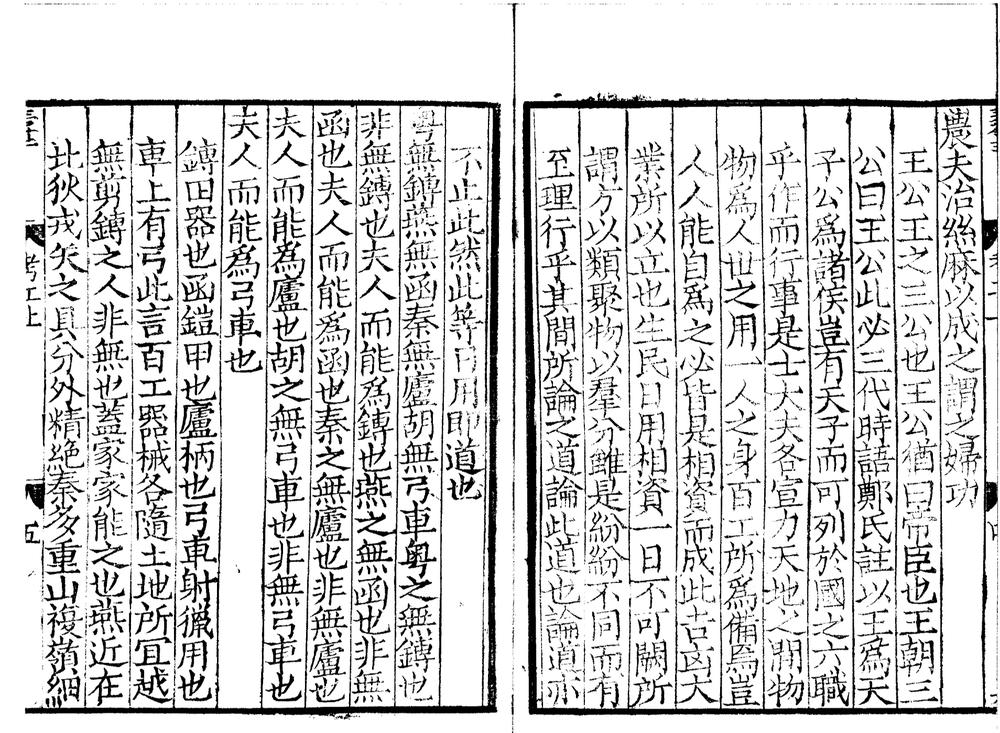 農夫治絲麻以成之謂之婦功
王公王之三公也王公猶曰帝臣也王朝三
公曰王公此必三代時語鄭氏註以王爲天
子公爲諸侯豈有天子而可列於國之六職
乎作而行事是士大夫各宣力天地之間物
物爲人世之用一人之身百工所爲備焉豈
人人能自爲之必皆是相資而成此古凶大
業所以立也生民日用相資一日不可闕所
謂方以類聚物以羣分雖是紛紛不同而有
至理行乎其間所論之道論此道也論道亦
不止此然此等日用即道也
粤無鏄燕無函秦無廬胡無弓車粤之無鏄也
非無鏄也夫人而能爲鏄也燕之無函也非無
函也夫人而能爲函也秦之無廬也非無廬也
夫人而能爲廬也胡之無弓車也非無弓車也
夫人而能爲弓車也
鏄田器也函鎧甲也廬柄也弓車射獵用也
車上有弓此言百工器械各隨土地所宜越
無剪鏄之人非無也蓋家家能之也燕近在
北狄戎矢之具分外精絶秦多重山複嶺網
考工上
五